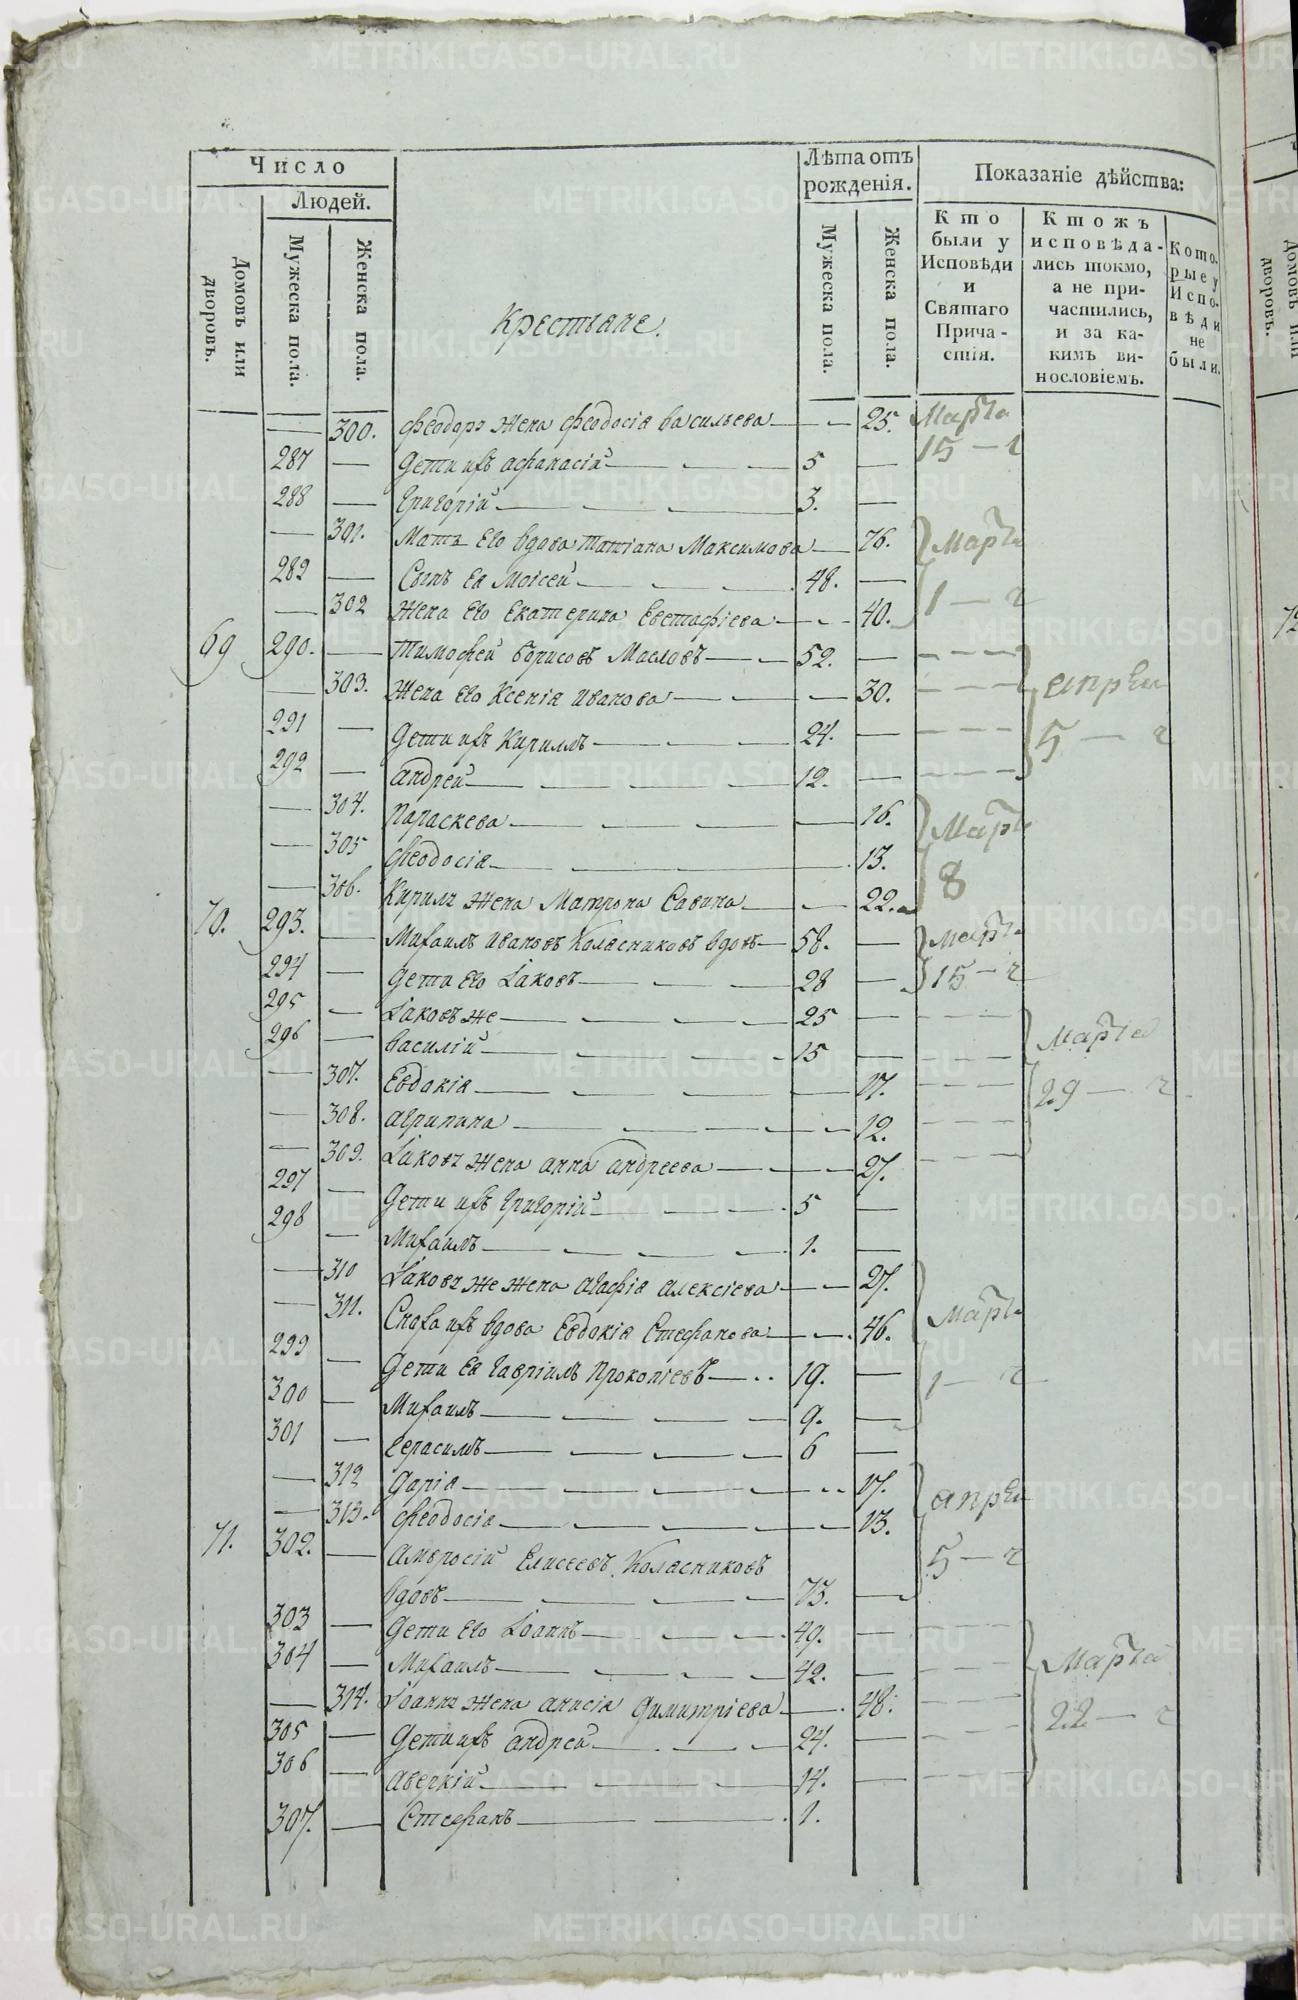 Число
Людей.
Домовъ или дворовъ.
Мужеска пола.
Женска пола.
Крестьяне.
Лѣта отъ рожденія.
Мужеска пола.
Женска пола.
Показаніе дѣйства:
Кто были у Исповѣди и Святаго Причастія.
Ктожъ исповѣдались токмо, а не причастились, и за какимъ винословіемъ.
Которые у Исповѣди не были.
— 300. Феодора жена Феодосія Васильева — — 25. Марта
287 — Дети ихъ Афанасій — — — 5 — 15 — г
288 — Григорій — — — 3. —
— 301. Мать Его вдова Татіана Максимова — 76. Марта
289 — Сынъ Ея Моісей — — — 48. —
— 302 Жена Его Екатерина Евстафіева — — 40. 1 — г
69 290. — Тимофей Борисовъ Масловъ — — 52. — — — —
— 303. Жена Его Ксенія Иванова — — — 30. — — — апреля
291 — Дети ихъ Кирилъ — — — 24. — — — — 5 — г
292 — Андрей — — — — 12. — — — —
— 304. Параскева — — — — 16. Марта
— 305 Феодосія — — — — 13.
— 306. Кирила жена Матрона Савина — — 22. 8
70. 293. — Михаилъ Ивановъ Колясниковъ вдовъ — 58. — Марта
294 — Дети Его Іаковъ — — — 28 — 15 — г
295 — Іаковъ же — — — — 25 — — — —
296 — Василій — — — — 15 — — — — Марта
— 307. Евдокія — — — — 17. — — — 29 — г
— 308. Агрипина — — — — 12. — — —
— 309. Іакова жена Анна Андреева — — — 27. — — —
297 — Дети ихъ Григорій — — — 5 —
298 — Михаилъ — — — — 1. —
— 310 Іакова же жена Агафія Алексіева — — 27.
— 311. Сноха ихъ вдова Евдокія Стефанова — — 46. Марта
299 — Дети Ея Гавріилъ Прокопіевъ — 19. —
300 — Михаилъ — — — — 9. — 1 — г
301 — Герасимъ — — — — 6 —
— 312 Дарія — — — — 17. апреля
— 313. Феодосія — — — — 13.
71. 302. — Амвросій Елисеевъ Колясниковъ 5 — г
вдовъ — — — — 73. —
303 — Дети Его Іоаннъ — — — 49. — — — —
304 — Михаилъ — — — — 42. — — — — Марта
— 314. Іоанна жена Анисія Димитріева — 48. — — — 22 — г
305 — Дети ихъ Андрей — — — 24. — — —
306 — Аверкій — — — — 14. — — — —
307. — Стефанъ — — — 1.
METRIKI.GASO-URAL.RU